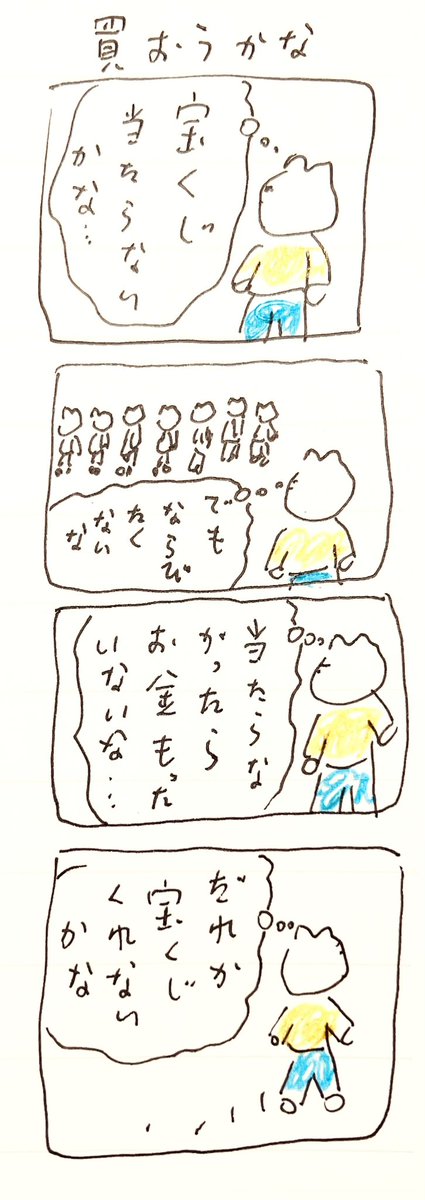 買おうかな
宝くじ
当たらない
かな…
でも
ならび
たく
ない
な
当たらな
かったら
お金もった
いないな…
だれか
宝くじ
くれない
かな